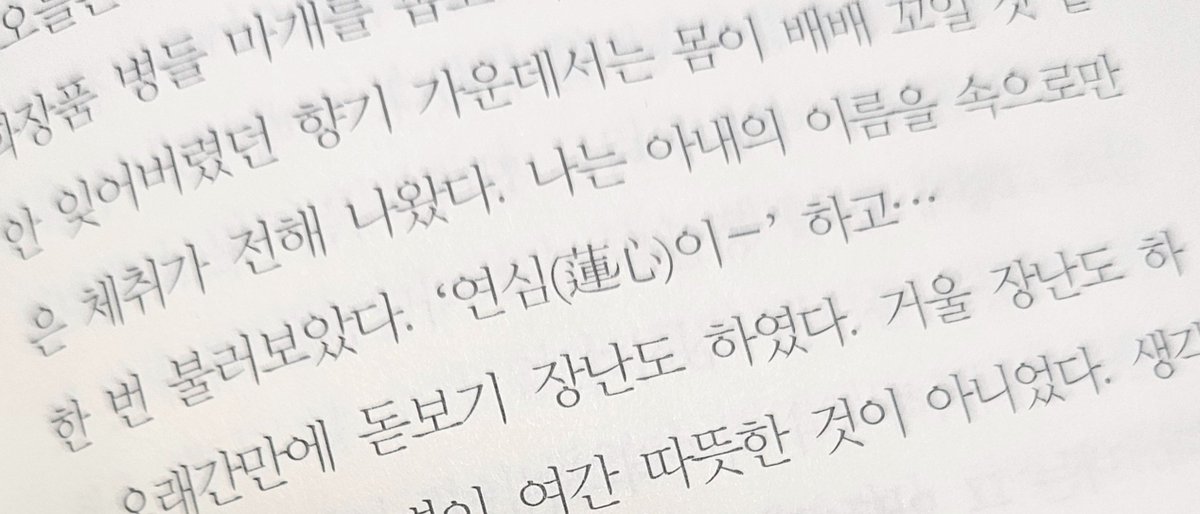 병들 마개를
화장품 잊어버렸던 향기 가운데서는 몸이 배배 꼬일 것
은 체취가 전해 나왔다. 나는 아내의 이름을 속으로만
한 번 불러보았다. ‘연심(蓮心)이—’ 하고…
오래간만에 돋보기 장난도 하였다. 거울 장난도 하
여간 따뜻한 것이 아니었다.